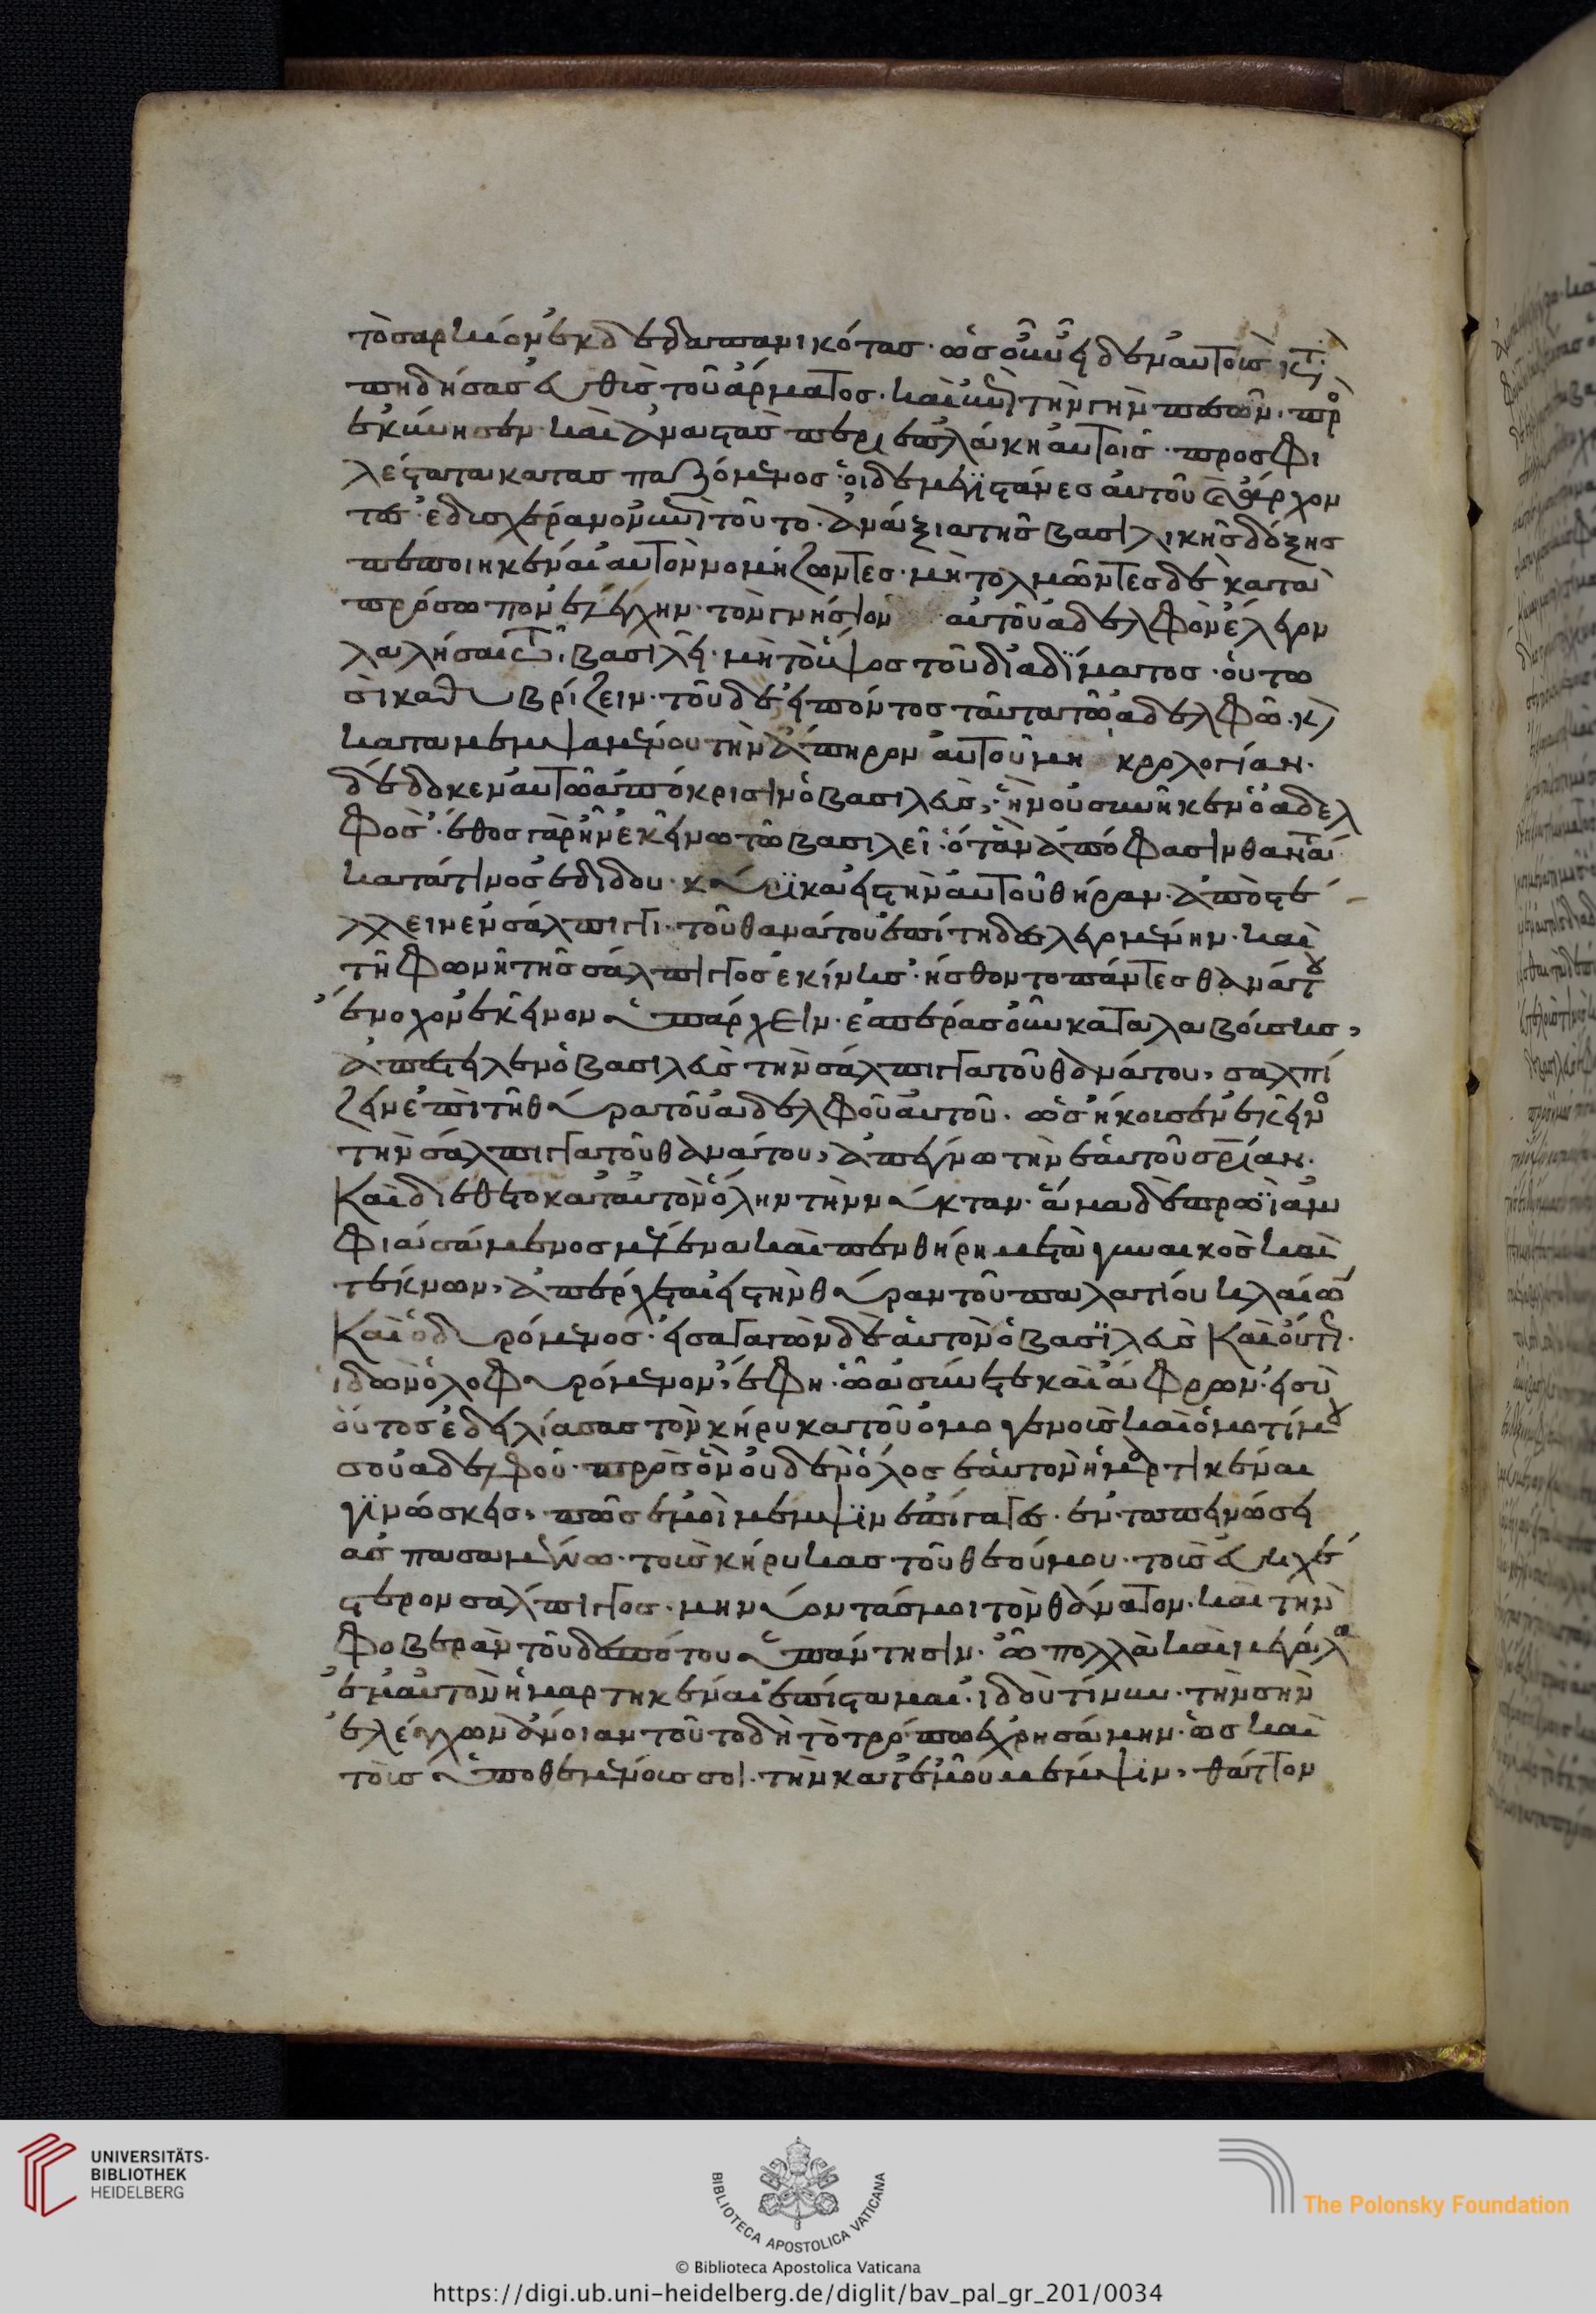 τὸ σαρκίον ἐκδεδαπανικότασ· ὡσ οὖν εἶδεν αὐτοὺσ κατα
πηδήσασ εὐθὺσ τοῦ ἅρματοσ· καὶ ἐπὶ τὴν γὴν πεσὼν· προ
εκύνησεν· καὶ ἀναστὰσ περιεπλάκη αὐτοῖσ· προσφι
λέστατα κατασπαζόμενοσ· οἱ δὲ μεγϊστάνεσ αὐτοῦ
τεσ· ἐδισχέραινον ἐπὶ τοῦτο· ἀνάξια τῆσ βασιλικῆσ δόξησ
πεποιηκέναι αὐτὸν νομήζοντεσ· μὴ τολμῶντεσ δὲ κατὰ
πρόσωπον ἐλέγχην· τὸν γνήσιον αὐτοῦ ἀδελφὸν ἔλεγον
λαλῆσαι τῶ βασιλεῖ· μὴ τὸ ὕψοσ τοῦ διαδϊματοσ· οὕτω
σὶ καθυβρίζειν· τοῦ δὲ εἰπόντοσ ταῦτα τῶ ἀδελφῶ· καὶ
καταμεμψαμένου τὴν ἄπηρον αὐτοῦ μικρολογίαν·
δέδοκεν αὐτῶ ἀπόκρισιν ὁ βασιλεὺσ, ἣν οὐ συνῆκεν ὁ ἀδελ
φὸσ· ἔθοσ γὰρ ἦν ἐκείνω τῶ βασιλεῖ· ὅταν ἀπόφασιν θανάτου
κατά τινοσ ἐδίδου· κήρϊκα εἰσ τὴν αὐτοῦ θήραν· ἀποστέ
λλειν ἐν σάλπιγγι· τοῦ θανάτου ἐπὶ τη δελεγμένην· καὶ
τῆ φωνῆ τῆσ σάλπιγγοσ ἐκίνισ· ἤσθοντο πάντεσ θανάτου
ἔνοχον ἐκεῖνον ὑπάρχειν· ἑσπέρασ οὖν καταλαβούσισ,
ἀπέστειλεν ὁ βασιλεὺσ τὴν σάλπιγγα τοῦ θανάτου, σαλπί
ζειν ἐπὶ τῆ θύρα τοῦ ἀδελφοῦ αὐτοῦ· ὡσ ἤκουσεν ἐκεῖνοσ
τὴν σάλπιγγα τοῦ θανάτου, ἀπέγνω τὴν ἑαυτοῦ σρίαν·
Καὶ διέθετο κατ' αὐτὸν ὅλην τὴν νύκταν· ἅμα δὲ πρωῒ ἀμ
φιασάμενοσ μέλενα καὶ πενθήρη μετὰ γυναικὸσ καὶ
τέκνων, ἀπέρχεται εἰσ τὴν θύραν τοῦ παλατίου κλαίων
Καὶ ὀδυρόμενοσ· εἰσαγαγὼν δὲ αὐτὸν ὁ βασϊλεὺσ Καὶ οὕτωσ
ἰδὼν ὁλοφυρόμενον, ἔφη· ὦ ἀσύνετε καὶ ἄφρων· εἰ σὺ
οὗτοσ ἐδειλίασασ τὸν κήρυκα τοῦ ὁμογενοῦσ καὶ ὁμοτίμου
σου ἀδελφοῦ· πρὸσ ὃν οὐδὲν ὅλοσ ἑαυτὸν ἡμαρτικέναι
γϊνώσκησ, πῶσ ἐμοὶ μέμψϊν ἐπίγαγεσ· ἐν ταπεινώσει
ασπασαμένω· τοὺσ κήρυκασ τοῦ θεοῦ μου· τοὺσ εὐηχέ
στερον σάλπιγγοσ· μηνύοντάσ μοι τὸν θάνατον· καὶ τὴν
φοβερὰν τοῦ δεσπότου ὑπάντησιν· ὦ πολλὰ καὶ μεγάλα
ἐμαυτὸν ἡμαρτηκέναι ἐπίσταμαι· ἰδοὺ τίνυν· τὴν σὴν
ἐλέγχων ἄνοιαν τοῦτο δὴ τὸ τρόπω ἐχρησάμην· ὡσ καὶ
τοῖσ ὑποθεμένοισ σοι· τὴν κατ' ἐμοῦ μέμψϊν, θάττον
UNIVERSITÄTS-
BIBLIOTHEK
HEIDELBERG
BIBLIOTECA APOSTOLICA VATICANA
The Polonsky Foundation
© Biblioteca Apostolica Vaticana
https://digi.ub.uni-heidelberg.de/diglit/bav_pal_gr_201/0034